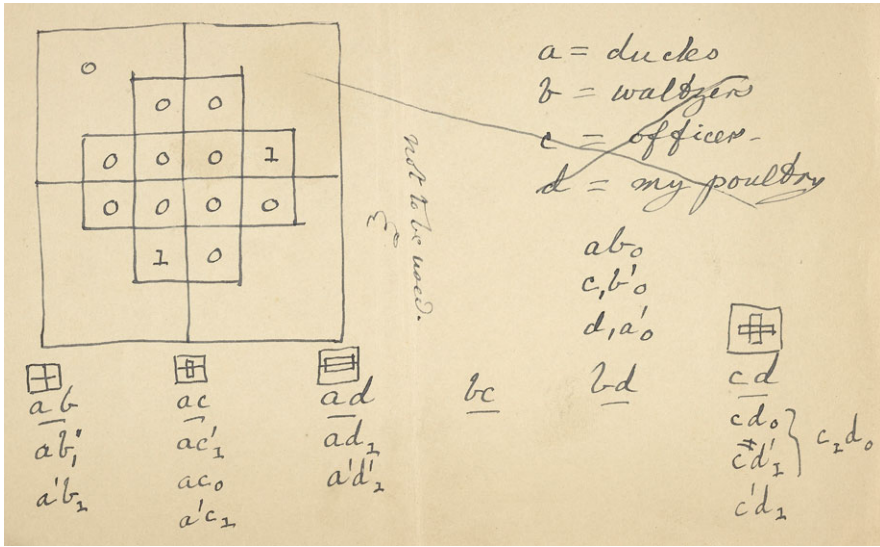 0
0 0
0 0 0 1
0 0 0 0
1 0
not to be used.
a = ducks
b = waltzers
c = officers
d = my poultry
ab₀
c₁b'₀
d₁a'₀
ab
ab'₁
a'b₁
ac
ac'₁
ac₀
a'c₁
ad
ad₁
a'd'₁
bc
bd
cd
cd₀
cd'₁
c'd₁
c₁d₀